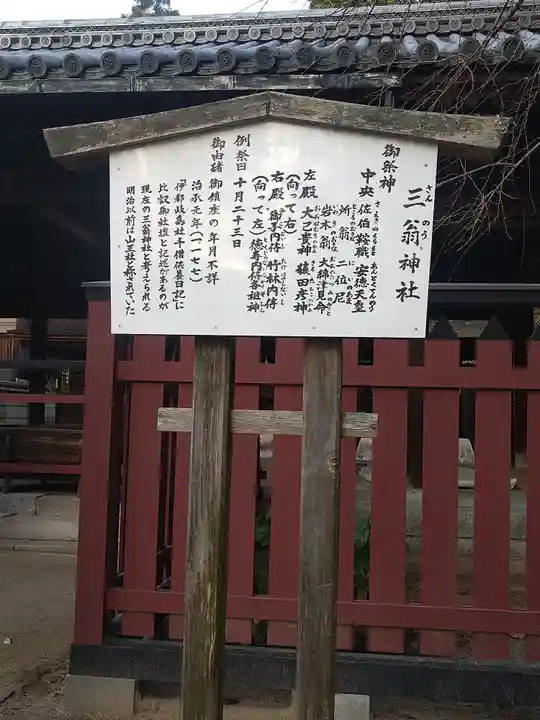 三翁神社
さんのう
御祭神
中央 佐伯鞍職 安徳天皇
所翁 二位尼
岩木翁 大綿津見命
左殿 大己貴神 猿田彦神
(向って右)
右殿 御子内侍 竹林内侍
(向って左) 徳寿内侍各祖神
例祭日 十月二十三日
御由緒 御鎮座の年月不詳
治承元年(一一七七)
伊都岐島社千僧供養日記に
比叡御社壇と記述があるのが
現在の三翁神社と考えられる
明治以前は山王社と称されていた